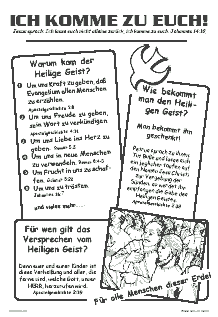 ICH KOMME ZU EUCH!
Jesus sprach: Ich lasse euch nicht allein zurück, ich komme zu euch. Johannes 14:18
Warum kam der
Heilige Geist?
Um uns Kraft zu geben, daß
Evangelium allen Menschen
zu erzählen.
Apostelgeschichte 1:8
Um uns Freude zu geben,
sein Wort zu verkündigen
Apostelgeschichte 4:31
Um uns Liebe ins Herz zu
geben. Römer 5:5
Um uns in neue Menschen
zu verwandeln.
Um Frucht in uns zu schaf-
fen.
Um uns zu trösten
Johannes
und vieles mehr...
Wie bekommt
man den Heili-
gen Geist?
Man bekommt ihn
geschenkt!
Petrus sprach zu ihnen:
Tut Buße und lasse sich
ein jeglicher taufen auf den
Namen Jesu Christi
zur Vergebung der
Sünden, so werdet ihr
empfangen die Gabe des
Heiligen Geistes.
Apostelgeschichte 2:38
Für wen gilt das
Versprechen vom
Heiligen Geist?
Denn euer und eurer Kinder ist
diese Verheißung und aller, die
ferne sind, welche Gott, unser
HERR, herzurufen wird.
Apostelgeschichte 2:39
Für alle Menschen dieser Erde!